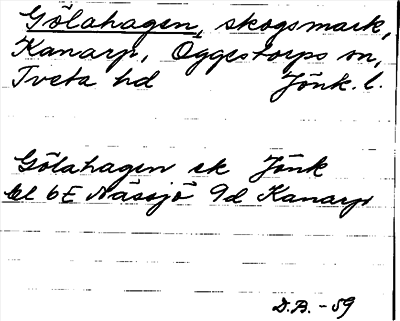 Gölahagen, skogsmark,
Kanarp, Öggestorps sn,
Tveta hd Jönk. l.
Gölahagen sk Jönk
bl 6E Nässjö 9d Kanarp
D.B. - 59